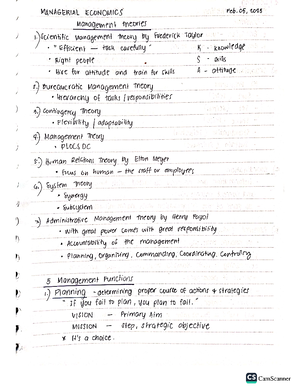 MANAGERIAL ECONOMICS Feb. 05, 2025
Management Theories
1.) Scientific Management Theory by Frederick Taylor
• "Efficient – task carefully" K - knowledge
• Right people S - skills
• Hire for attitude and train for skills A - attitude
2.) Bureaucratic Management Theory
• hierarchy of tasks / responsibilities
3.) Contingency Theory
• Flexibility / adaptability
4.) Management Theory
5.) Human Relations Theory By Elton Meyer
• focus on human – the staff or employees
6.) System Theory
• Synergy
• Subsystem
7.) Administrative Management Theory by Henry Fayol
• With great power comes with great responsibility
• Accountability of the management
• Planning, Organizing, Commanding, Coordinating, Controlling
5 Management Functions
1.) Planning - determining proper course of actions & strategies
"If you fail to plan, you plan to fail."
VISION – Primary Aim
MISSION – Step, strategic objective
* It's a choice.
CS CamScanner